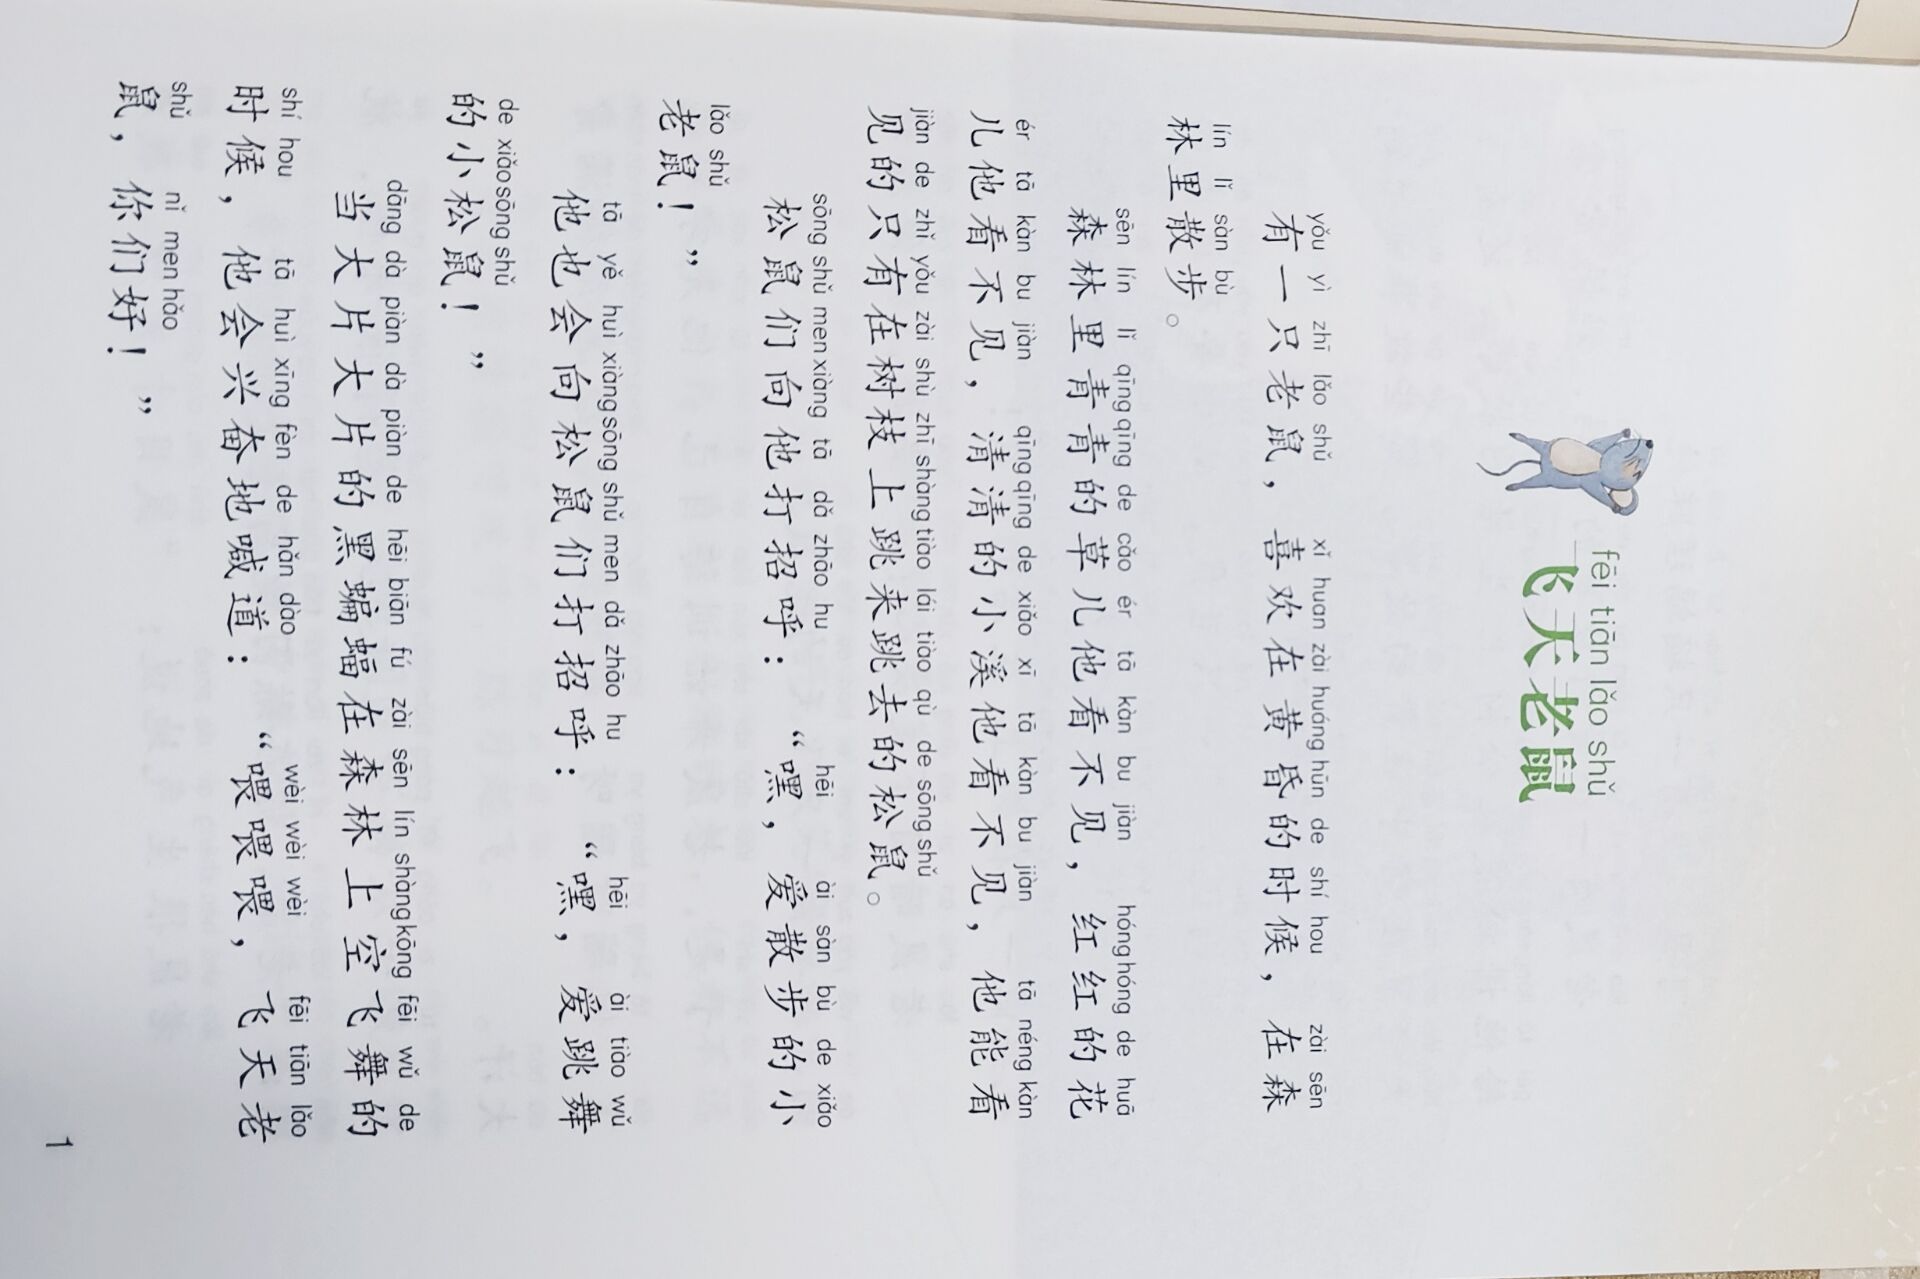 fēi tiān lǎo shǔ
飞天老鼠
yǒu yì zhī lǎo shǔ xǐ huan zài huáng hūn de shí hou zài sēn
有一只老鼠，喜欢在黄昏的时候，在森
lín lǐ sàn bù
林里散步。
sēn lín lǐ qīng qīng de cǎo ér tā kàn bu jiàn hóng hóng de huā
森林里青青的草儿他看不见，红红的花
ér tā kàn bu jiàn qīng qīng de xiǎo xī tā kàn bu jiàn tā néng kàn
儿他看不见，清清的小溪他看不见，他能看
jiàn de zhǐ yǒu zài shù zhī shàng tiào lái tiào qù de sōng shǔ
见的只有在树枝上跳来跳去的松鼠。
sōng shǔ men xiàng tā dǎ zhāo hu hēi ài sàn bù de xiǎo
松鼠们向他打招呼：“嘿，爱散步的小
lǎo shǔ
老鼠！”
tā yě huì xiàng sōng shǔ men dǎ zhāo hu hēi ài tiào wǔ
他也会向松鼠们打招呼：“嘿，爱跳舞
de xiǎo sōng shǔ
的小松鼠！”
dāng dà piàn dà piàn de hēi biān fú zài sēn lín shàng kōng fēi wǔ de
当大片大片的黑蝙蝠在森林上空飞舞的
shí hou tā huì xīng fèn de hǎn dào wèi wèi wèi fēi tiān lǎo
时候，他会兴奋地喊道：“喂喂喂，飞天老
shǔ nǐ men hǎo
鼠，你们好！”
1